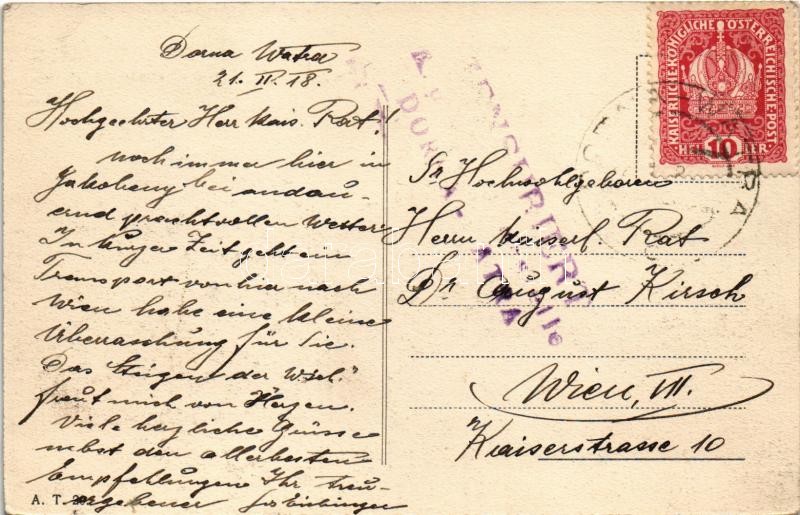 Dorna Watra
21. II. 18.
Hochgeehrter Herr Kais. Rat!
noch immer hier in
Jakobeny bei andau-
ernd prachtvollem Wetter
In kurzer Zeit geht ein
Transport von hier nach
Wien habe eine kleine
Überraschung für Sie.
Das Steigen der
freut mich von Herzen.
Viele herzliche Grüsse
nebst den allerbesten
Empfehlungen Ihr treu-
ergebener
A. T. 202
KAISERLICHE KÖNIGLICHE ÖSTERREICHISCHE POST
HELLER 10
ZENSURIERT
DORNA WATRA
Sr Hochwohlgeboren
Herrn Kaiserl. Rat
Dr. August Kirsch
Wien, VII.
Kaiserstrasse 10